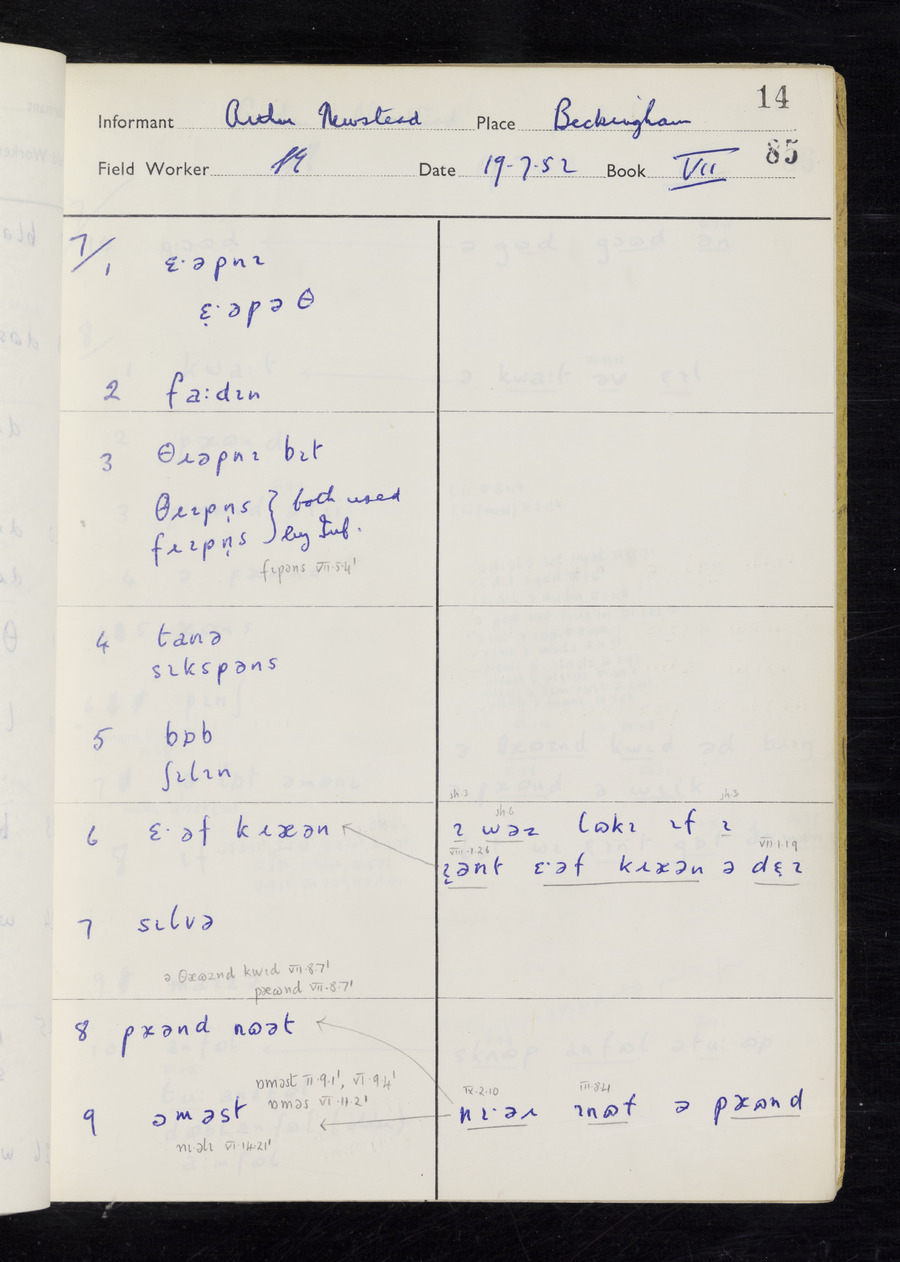 14
Informant Arthur Newstead Place Beckingham
85
Field Worker Date 19-7-52 Book VII
7/
1 ɛ·əpnɪ
ɛ̣·əpəθ
2 fa:dɪn
3 θɹəpnɪ bɪt
θɹɪpṇs } both used
fɹɪpṇs } by Inf.
fɪpəns VII·5·4'
4 tanə
sɪkspəns
5 bɒb
ʃɪlɪn
sh.3 sh.6 sh.3
6 ɛ·əf kɹɪən ɪ wəz lʊkɪ ɪf ɪ
VIII·1·26 VII·1·19
ənt ɛ·əf kɹɪən ə dɛɪ
7 sɪlvə
ə θəʊznd kwɪd VII·8·7'
pəʊnd VII·8·7'
8 pəʊnd nʊət
IX·2·10 VII·8·4
ɒməst II·9·1', VI·9·4'
ɒməs VI·11·2'
9 əməst nɪ·əɹ ɪnʊf ə pəʊnd
nɪ·əlɪ VI·14·21'